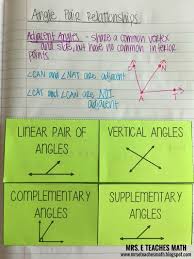 Angle Pair Relationships
Adjacent Angles - share a common vertex
and side, but have no common interior
points.
∠CAN and ∠NAT are adjacent
∠CAT and ∠CAN are NOT
adjacent
C
N
A
T
LINEAR PAIR OF
ANGLES
VERTICAL ANGLES
COMPLEMENTARY
ANGLES
SUPPLEMENTARY
ANGLES
MRS. E TEACHES MATH
www.mrseteachesmath.blogspot.com